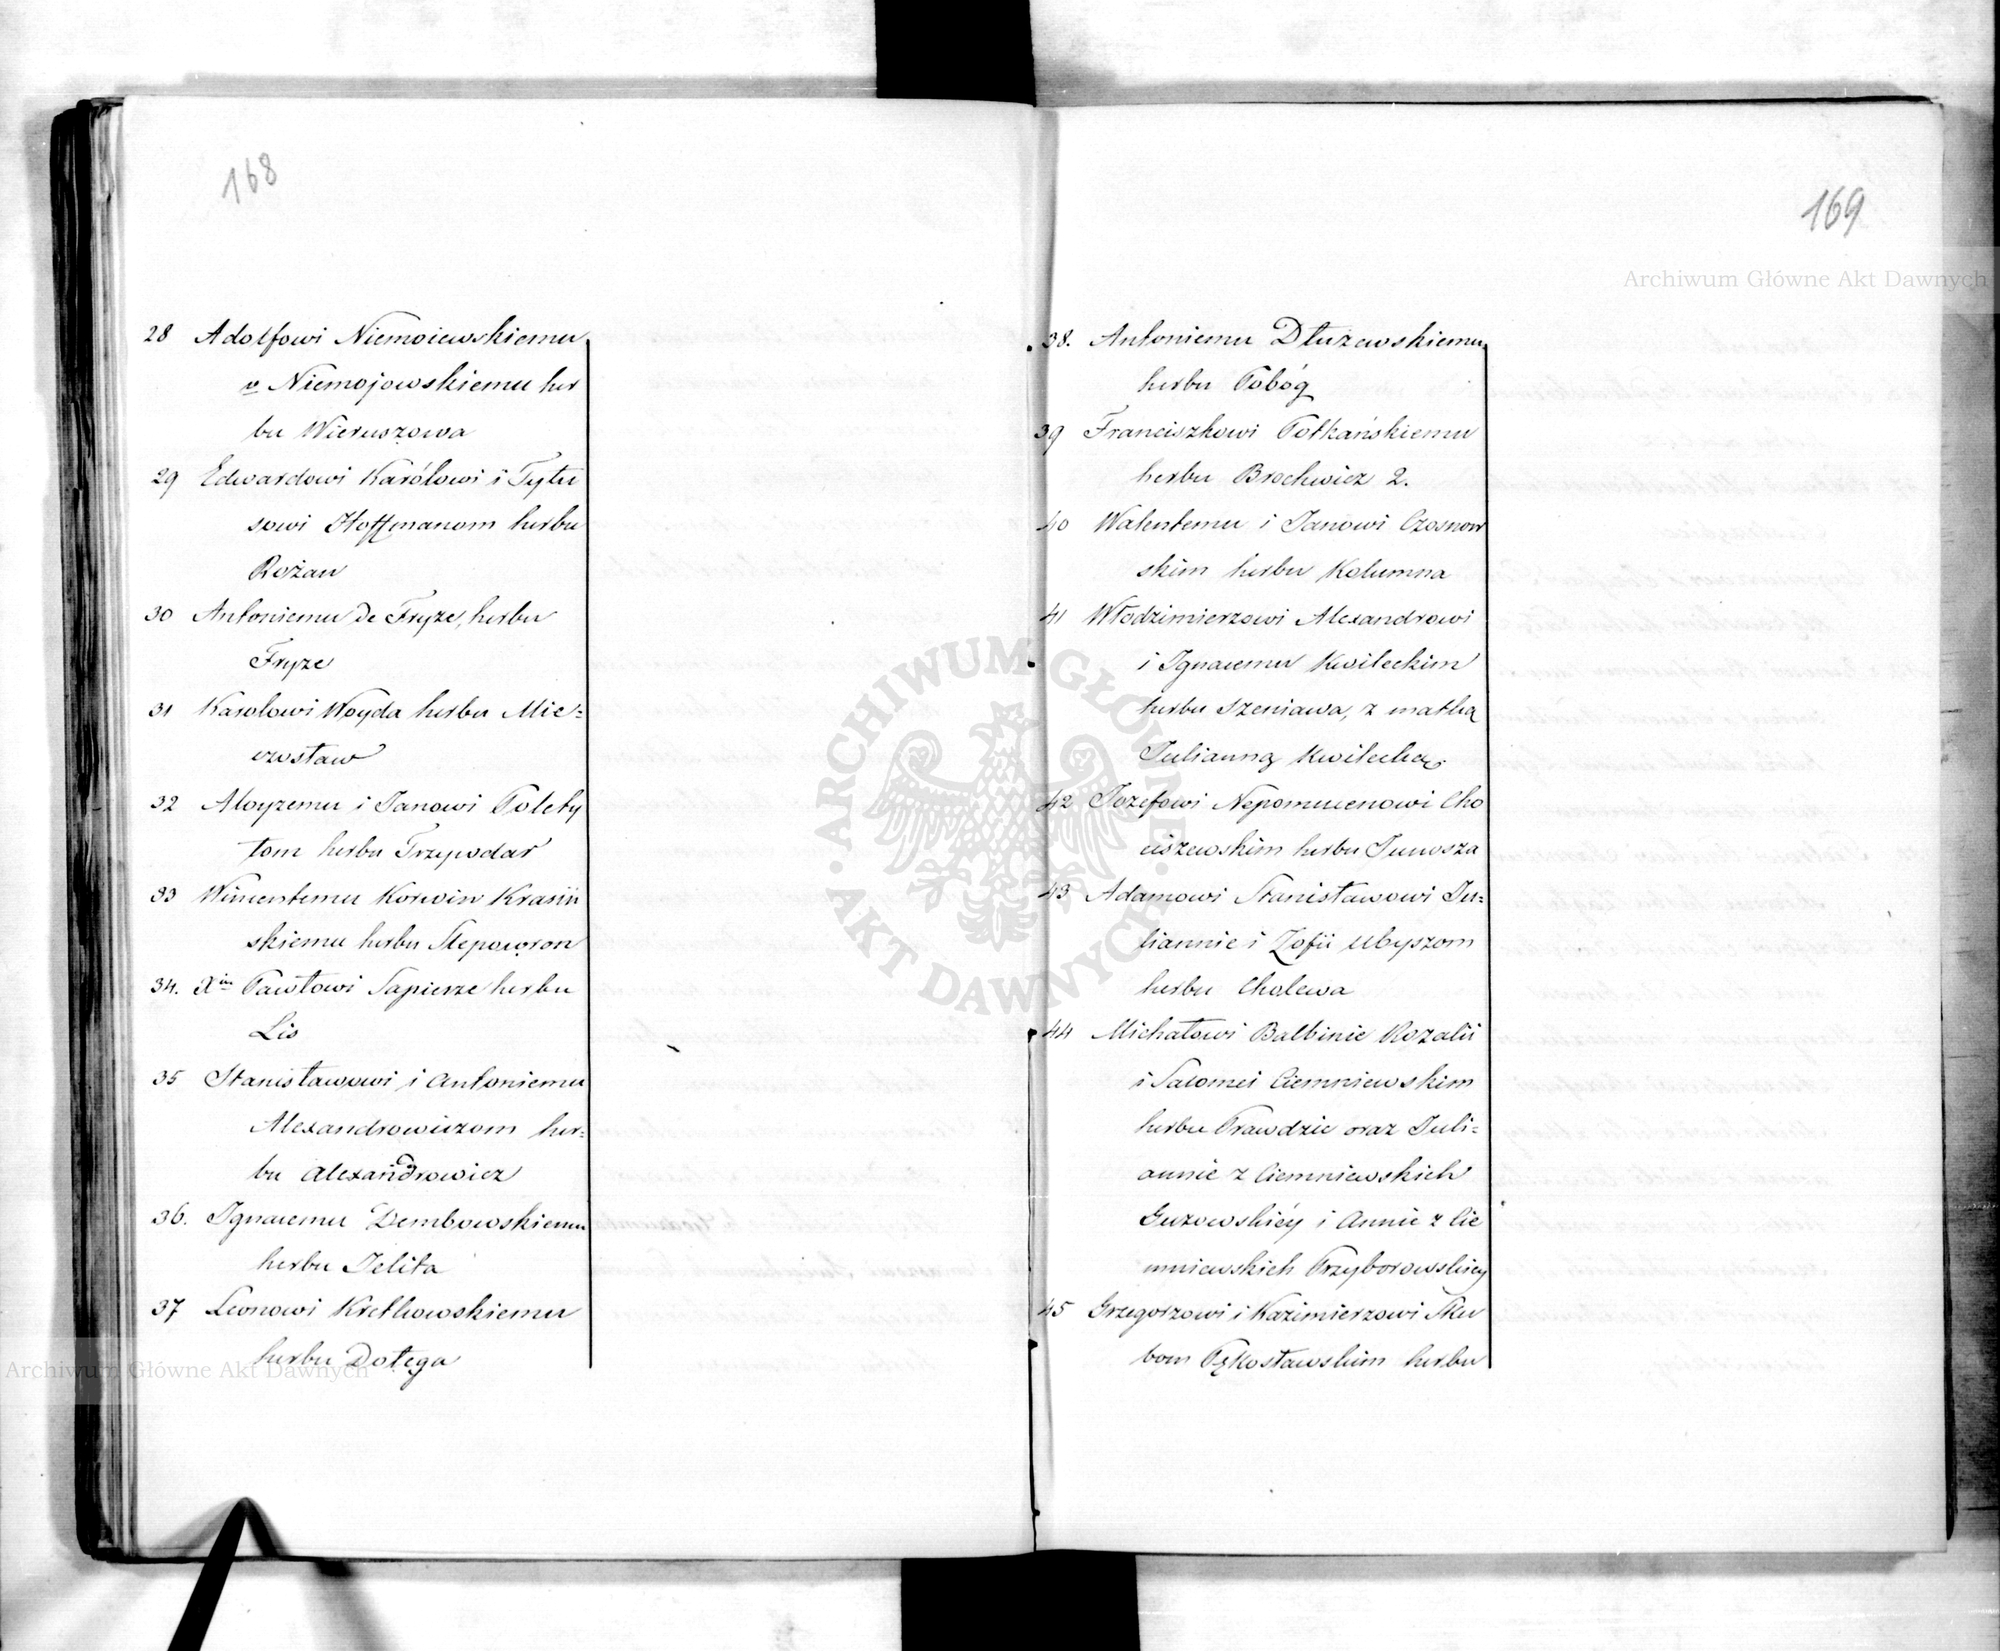 168
28 Adolfowi Niemoiewskiemu
v Niemojowskiemu her
bu Wieruszowa
29 Edwardowi Karólowi i Tytu
sowi Hoffmanom herbu
Rożan
30 Antoniemu de Fryze, herbu
Fryze
31 Karolowi Woyda herbu Mie=
czosław
32 Aloyzemu i Janowi Polety
łom herbu Trzywdar
33 Wincentemu Korwin Krasiń
skiemu herbu Slepowron
34. Xiu Pawłowi Sapierze herbu
Lis
35 Stanisławowi i Antoniemu
Alexandrowiczom her=
bu Alexandrowicz
36. Ignacemu Dembowskiemu
herbu Jelita
37 Leonowi Kretkowskiemu
herbu Dołęga
169
38. Antoniemu Dłużewskiemu
herbu Pobóg
39 Franciszkowi Potkańskiemu
herbu Brochwicz 2.
40 Walentemu i Janowi Czosnow
skim herbu Kolumna
41 Włodzimierzowi Alexandrowi
i Ignacemu Kwileckim
herbu Szeniawa, z matką
Julianną Kwilecką.
42 Jozefowi Nepomucenowi Cho
ciszewskim herbu Junosza
43 Adamowi Stanisławowi Ju=
liannie i Zofii Ubyszom
herbu Cholewa
44 Michałowi Balbinie Rozalii
i Salomei Ciemniewskim
herbu Prawdzic oraz Juli=
annie z Ciemniewskich
Guzowskiéy i Annie z Cie
mniewskich Przyborowskiey
45 Grzegorzowi i Kazimierzowi Sku
bom Pękosławskim herbu
ARCHIWUM GŁÓWNE AKT DAWNYCH
Archiwum Główne Akt Dawnych
Archiwum Główne Akt Dawnych